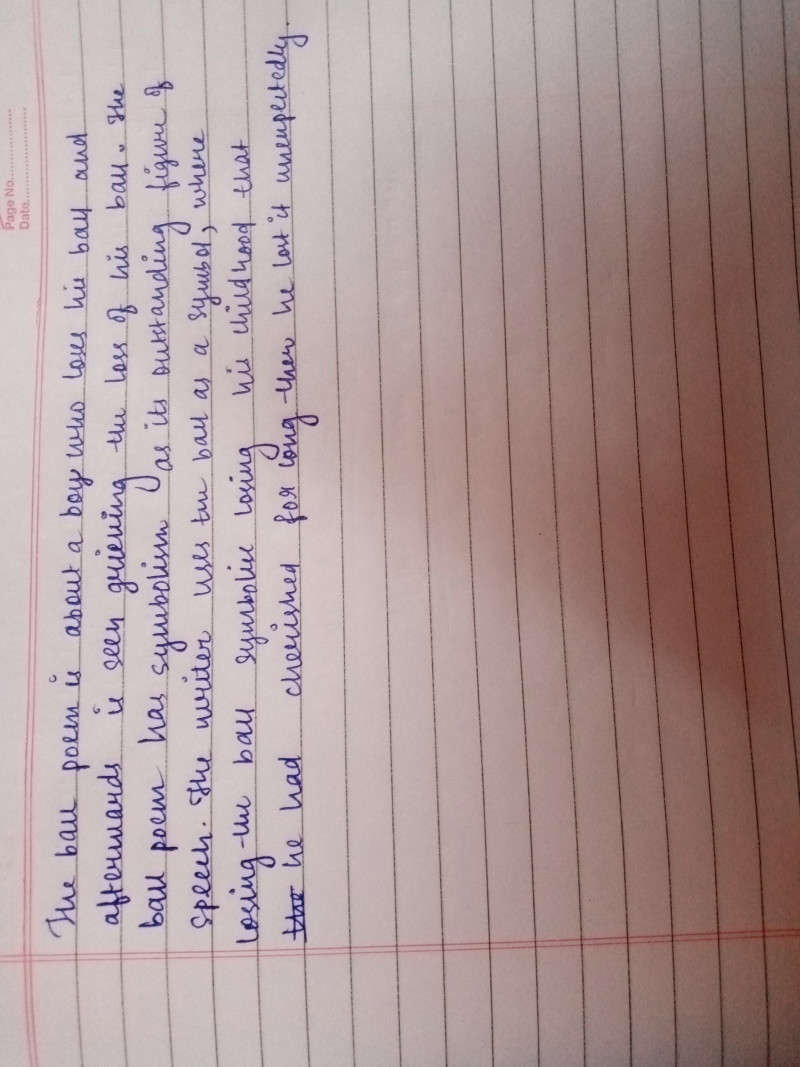 Page No..................
Date......................
The ball poem is about a boy who loses his ball and
afterwards is seen grieving the loss of his ball. The
ball poem has symbolism as its outstanding figure of
speech. The writer uses the ball as a symbol, where
losing the ball symbolic losing his childhood that
the he had cherished for long then he lost it unexpectedly.